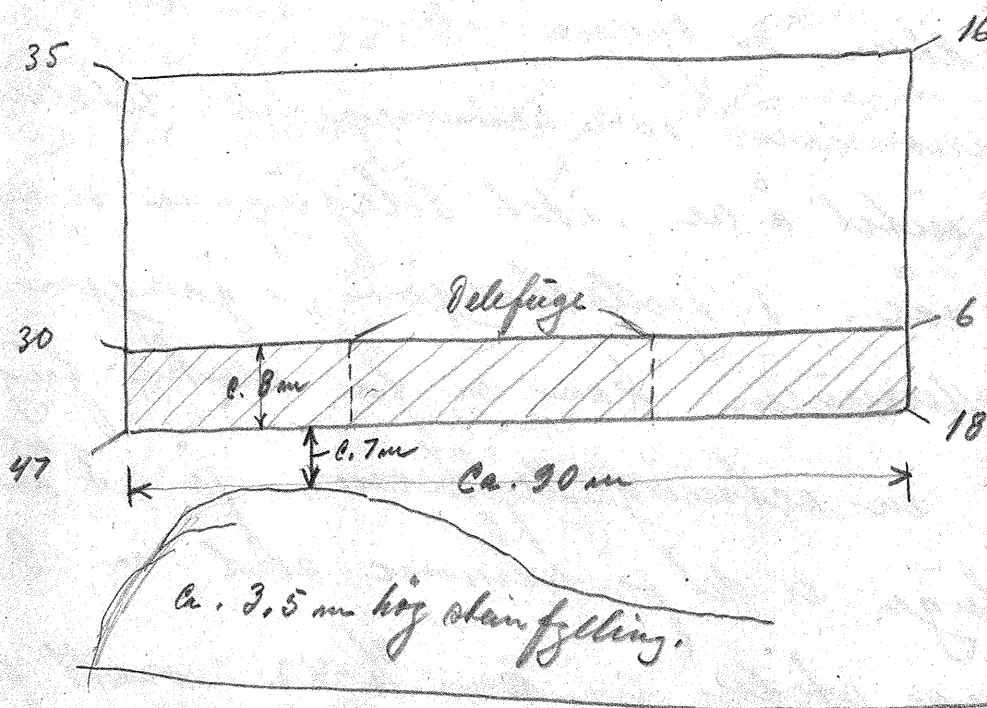 35
16
Delefuge
30
6
c. 8 m
18
c. 7 m
47
Ca. 90 m
Ca. 3,5 m hög steinfylling.